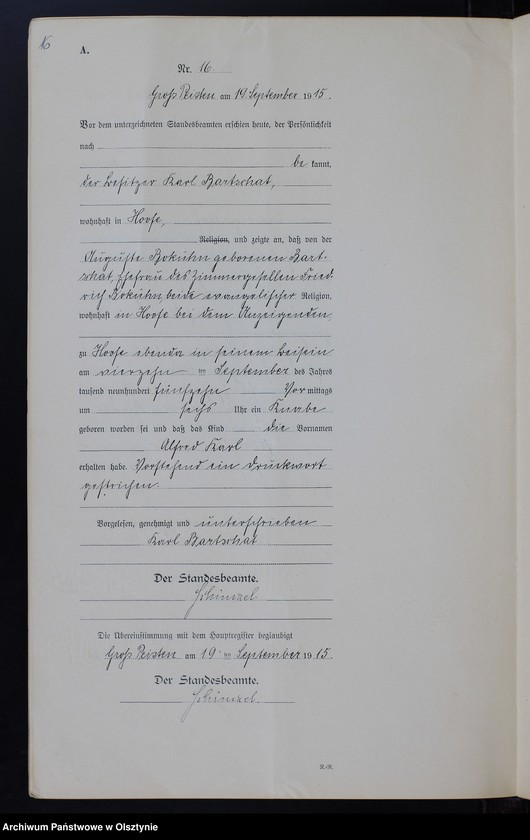 16
A.
Nr. 16.
Groß Peisten am 19 September 1915.
Vor dem unterzeichneten Standesbeamten erschien heute, der Persönlichkeit
nach
be kannt,
der Besitzer Karl Bartschat,
wohnhaft in Hoofe,
Religion, und zeigte an, daß von der
Auguste Bokuhn geborenen Bart-
schat, Ehefrau des Zimmergesellen Fried-
rich Bokuhn, beide evangelischer Religion,
wohnhaft in Hoofe bei dem Anzeigenden
zu Hoofe ebenda in seinem Beisein
am vierzehn ten September des Jahres
tausend neunhundert fünfzehn Vor mittags
um sechs Uhr ein Knabe
geboren worden sei und daß das Kind die Vornamen
Alfred Karl
erhalten habe. Vorstehend ein Druckwort
gestrichen.
Vorgelesen, genehmigt und unterschrieben
Karl Bartschat
Der Standesbeamte.
Schimzel
Die Übereinstimmung mit dem Hauptregister beglaubigt
Groß Peisten am 19 ten September 1915.
Der Standesbeamte.
Schimzel
Archiwum Państwowe w Olsztynie